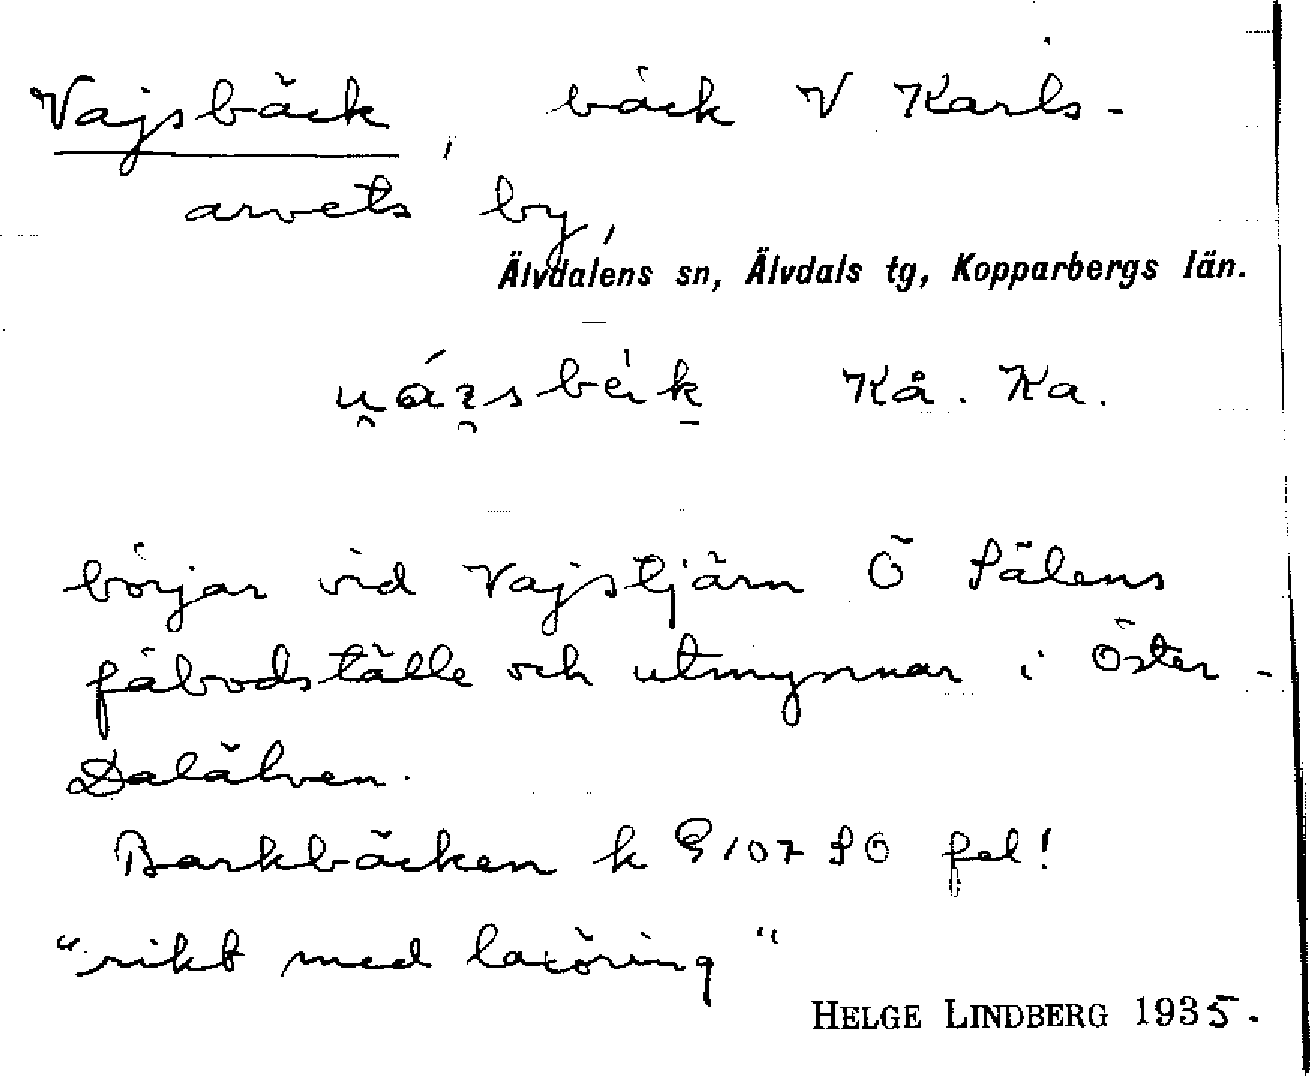 Vajsbäck, bäck V Karls-
arvets by,
Älvdalens sn, Älvdals tg, Kopparbergs län.
Kå. Ka.
börjar vid Vajstjärn Ö Sälens
fäbodställe och utmynnar i Öster-
Dalälven.
Barkbäcken k G 107 SO fel!
"rikt med laxöring"
HELGE LINDBERG 1935.